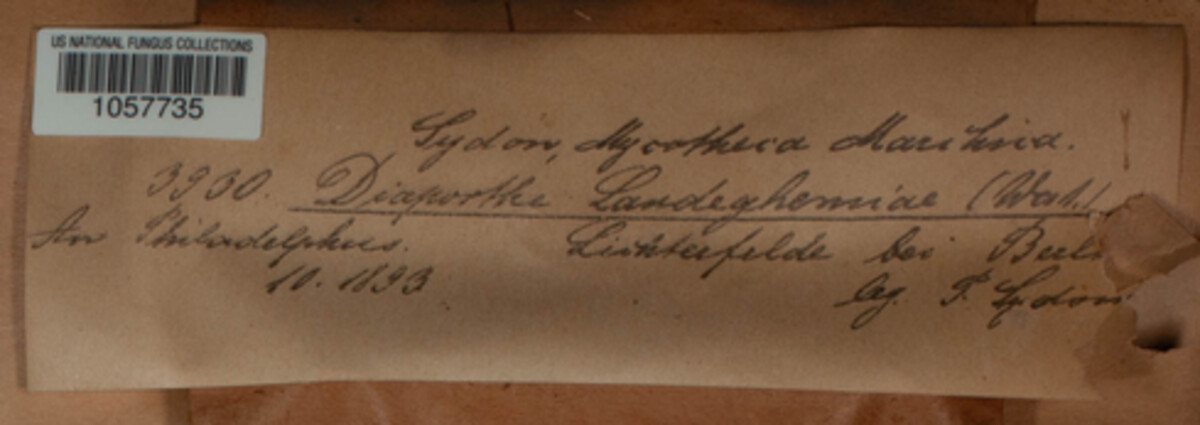 US NATIONAL FUNGUS COLLECTIONS
1057735
Sydow, Mycotheca Marchica.
3930. Diaporthe Landeghemiae (West.)
An Philadelphus. Lichterfelde bei Berl
10. 1893 leg. P. Sydow